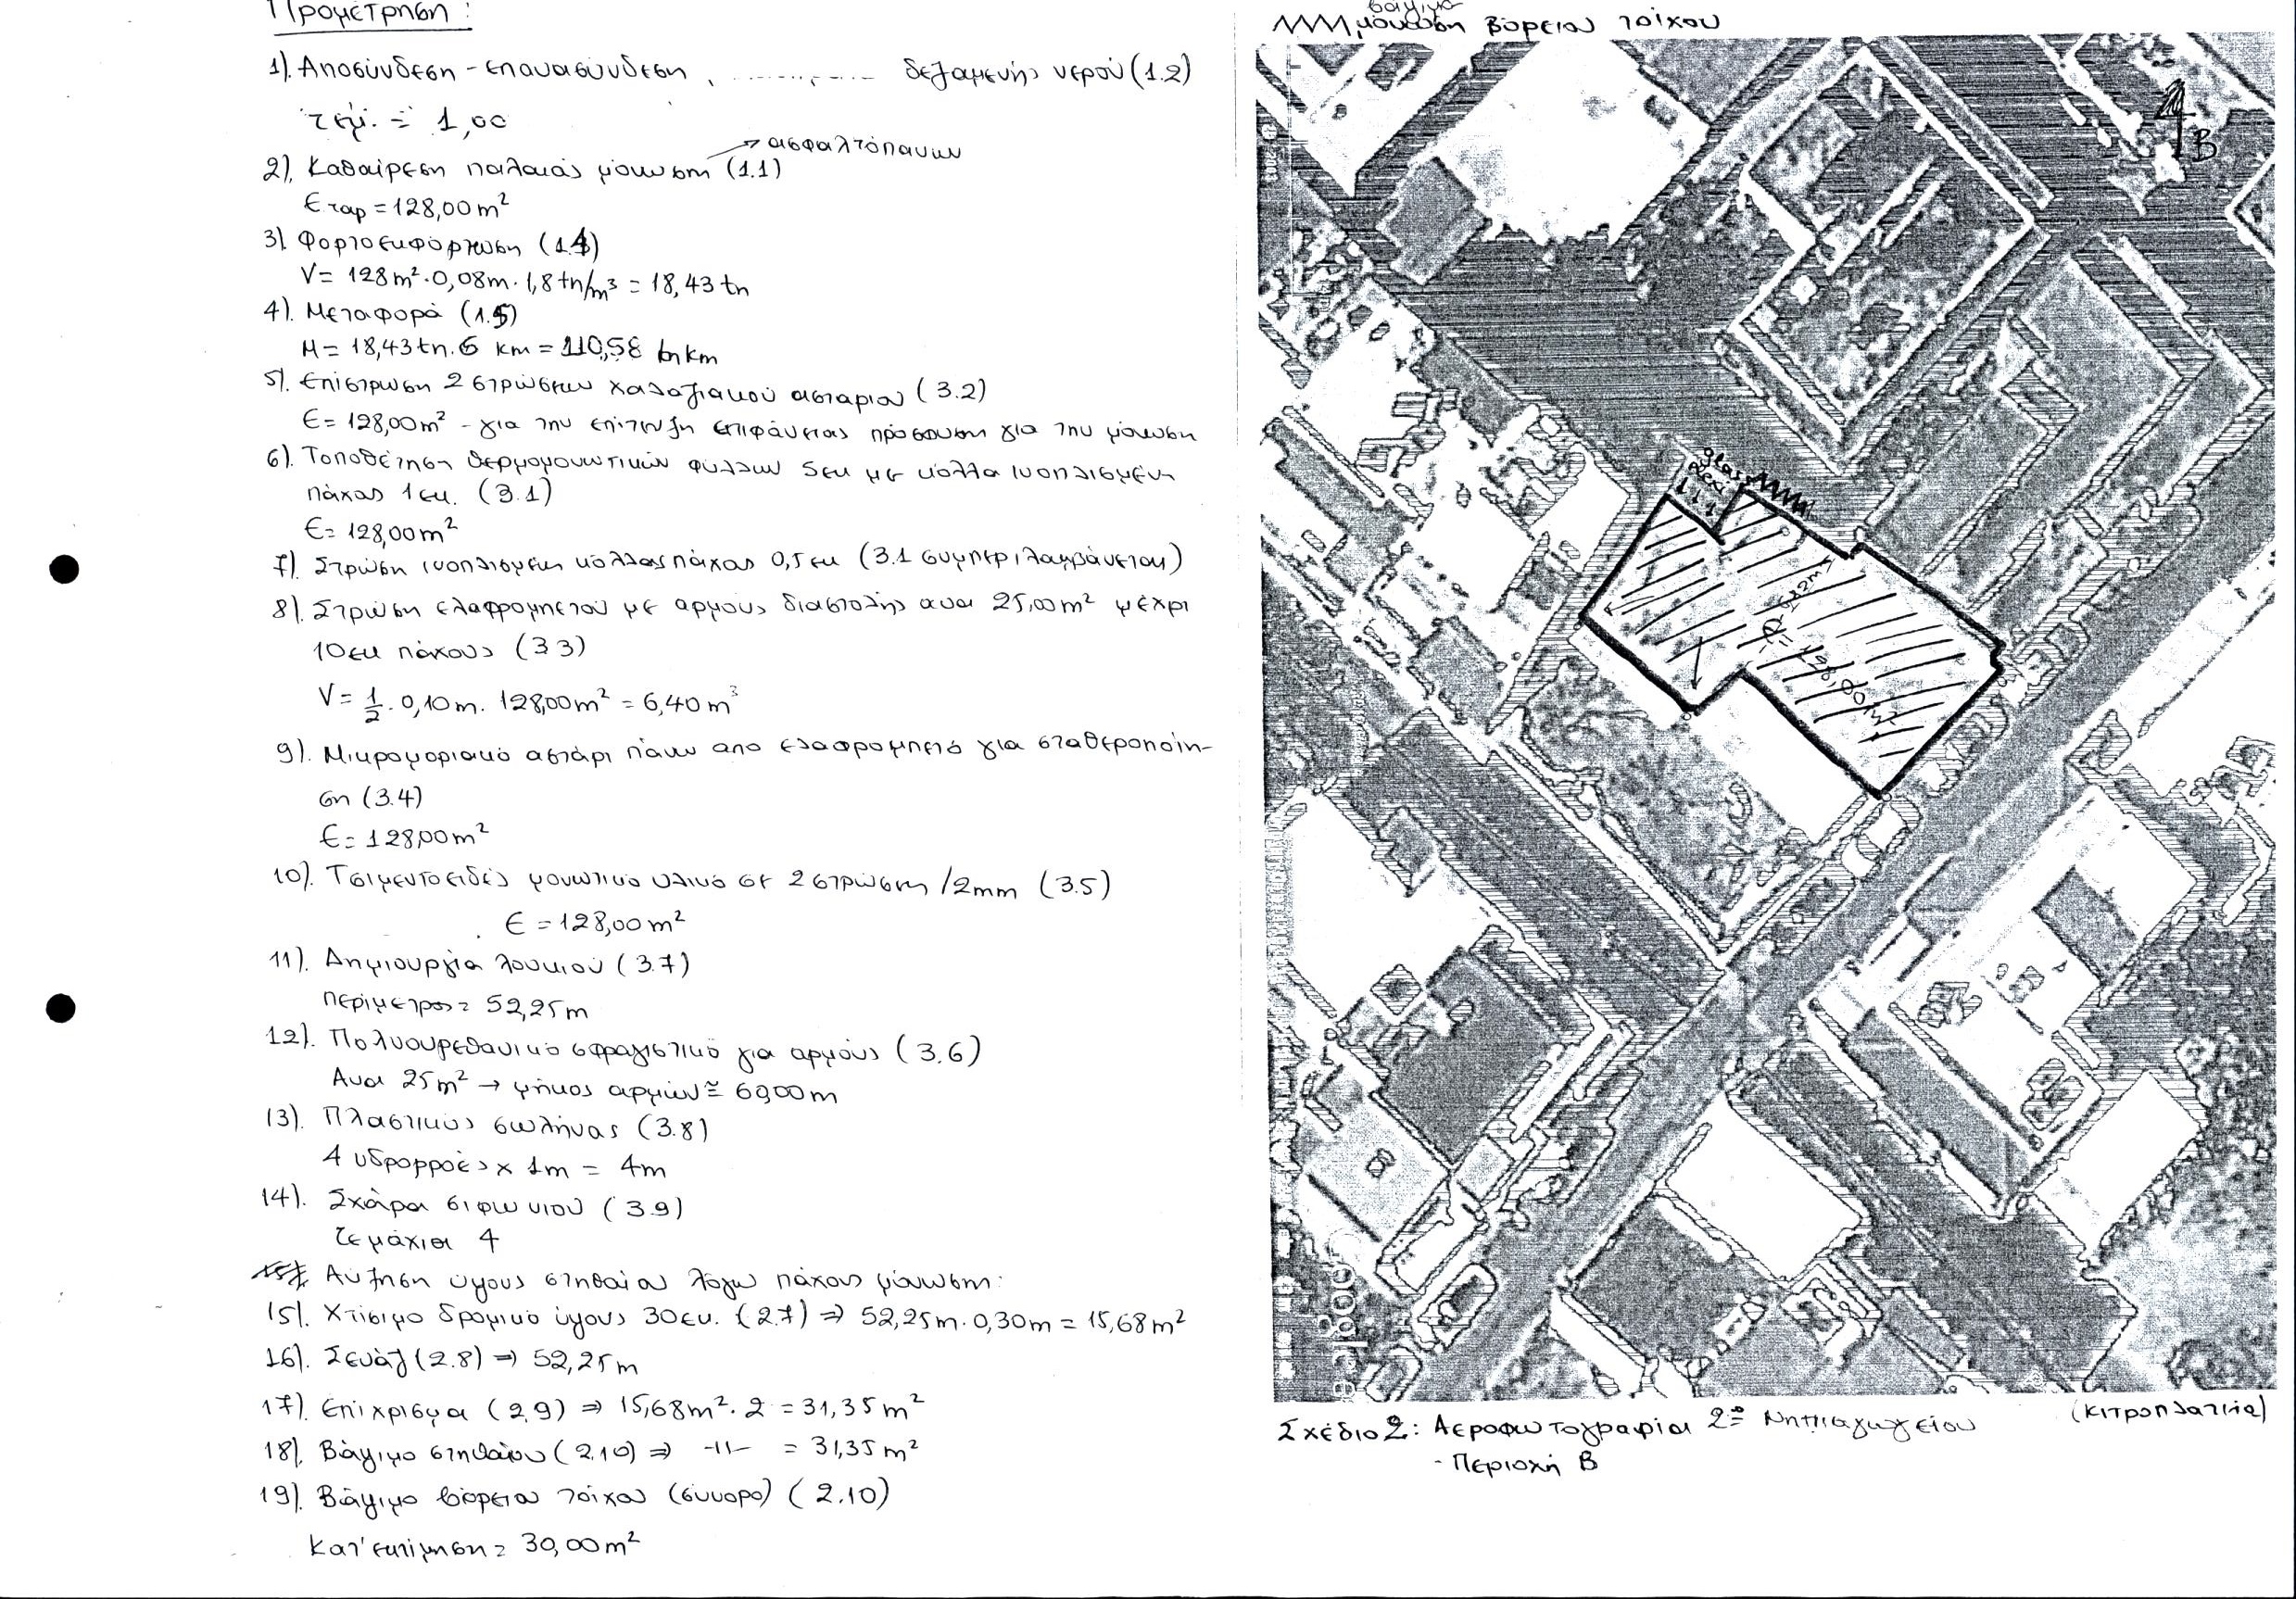 Προμέτρηση:
1). Αποσύνδεση - επανασύνδεση, ........,.... δεξαμενής νερού (1.2)
τεμ. = 1,00
→ ασφαλτόπανων
2). Καθαίρεση παλαιάς μόνωση (1.1)
Εταρ = 128,00 m²
3). Φορτοεκφόρτωση (1.4)
V = 128 m² · 0,08m · 1,8 tn/m³ = 18,43 tn
4). Μεταφορά (1.5)
Μ = 18,43 tn. 6 km = 110,58 tnkm
5). Επίστρωση 2 στρώσεων χαλαζιακού ασταριού (3.2)
Ε = 128,00 m² - για την επίτευξη επιφάνειας πρόσφυση για την μόνωση
6). Τοποθέτηση θερμομονωτικών φύλλων 5εκ με κόλλα ινοπλισμένη
πάχος 1εκ. (3.1)
Ε = 128,00 m²
7). Στρώση ινοπλισμένη κόλλας πάχος 0,5 εκ (3.1 συμπεριλαμβάνεται)
8). Στρώση ελαφρομπετού με αρμούς διαστολής ανα 25,00 m² μέχρι
10εκ πάχους (3.3)
V = 1/2 · 0,10 m. 128,00 m² = 6,40 m³
9). Μικρομοριακό αστάρι πάνω απο ελαφρομπετό για σταθεροποίη-
ση (3.4)
Ε = 128,00 m²
10). Τσιμεντοειδές μονωτικό υλικό σε 2 στρώσεις /2mm (3.5)
Ε = 128,00 m²
11). Δημιουργία λουκιού (3.7)
περίμετρος = 52,25 m
12). Πολυουρεθανικό σφραγιστικό για αρμούς (3.6)
Ανα 25 m² → μήκος αρμών ≅ 60,00 m
13). Πλαστικός σωλήνας (3.8)
4 υδρορροές x 1m = 4m
14). Σχάρα σιφωνιού (3.9)
τεμάχια 4
Αύξηση ύψους στηθαίου λόγω πάχους μόνωση:
15). Χτίσιμο δρομικό ύψους 30εκ. (2.7) ⇒ 52,25m. 0,30m = 15,68 m²
16). Σενάζ (2.8) ⇒ 52,25 m
17). Επίχρισμα (2.9) ⇒ 15,68 m². 2 = 31,35 m²
18). Βάψιμο στηθαίου (2.10) ⇒ -11- = 31,35 m²
19). Βάψιμο βόρειου τοίχου (σύνορο) (2.10)
Κατ' εκτίμηση = 30,00 m²
βάψιμο
μόνωση βόρειου τοίχου
Β
glass
plexi
Ε = 128,00 m²
Google
Σχέδιο 2: Αεροφωτογραφία 2ου Νηπιαγωγείου (Κιτροπλατεία)
- Περιοχή Β